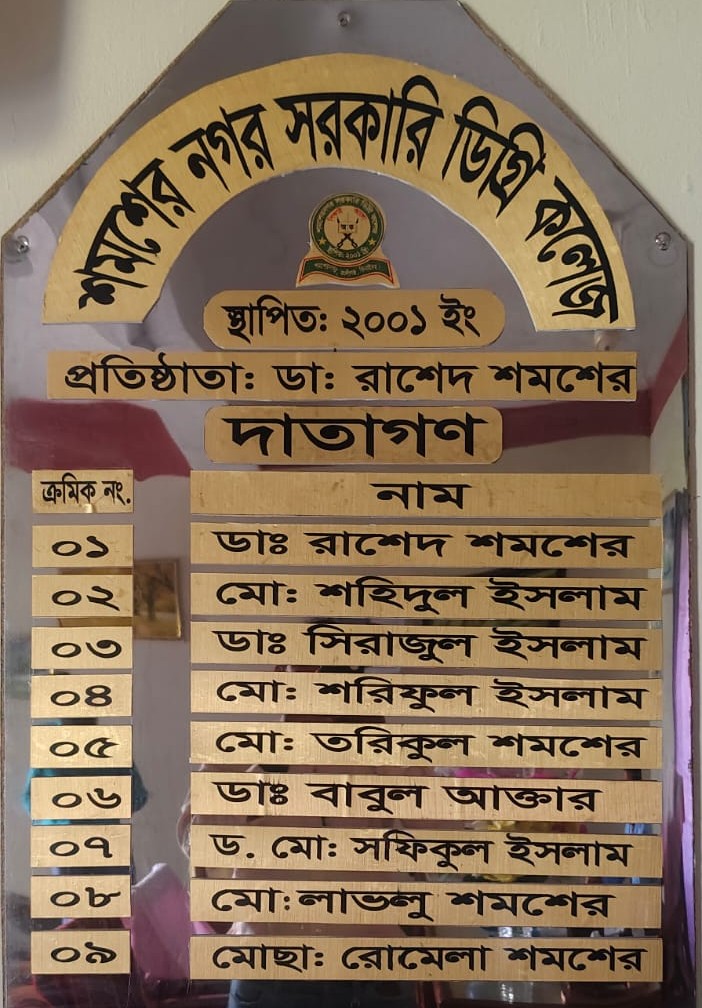 শমশের নগর সরকারি ডিগ্রি কলেজ
স্থাপিত: ২০০১ ইং
প্রতিষ্ঠাতা: ডা: রাশেদ শমশের
দাতাগণ
ক্রমিক নং. নাম
০১ ডাঃ রাশেদ শমশের
০২ মো: শহিদুল ইসলাম
০৩ ডাঃ সিরাজুল ইসলাম
০৪ মো: শরিফুল ইসলাম
০৫ মো: তরিকুল শমশের
০৬ ডাঃ বাবুল আক্তার
০৭ ড. মো: সফিকুল ইসলাম
০৮ মো:লাভলু শমশের
০৯ মোছা: রোমেলা শমশের